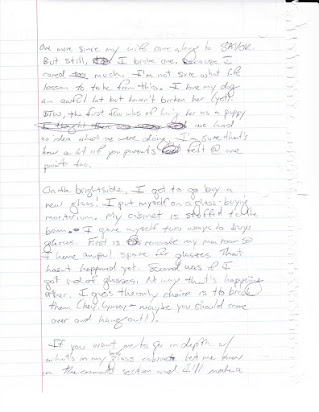 one more since my wife came along to SAVOR.
But still, I broke one. Because I
cared too much. I'm not sure what life
lesson to take from this. I love my dog
an awful lot but haven't broken her (yet).
the first few wks of having her as a puppy
I thought there we had
no idea what we were doing. I'm sure that's
how a lot of you parents felt @ one
point too.
On the brightside, I get to go buy a
new glass! I put myself on a glass-buying
moratorium. My cabinet is stuffed to the
I gave myself two ways to buy
glasses. First is renovate my man room so
I have ample space for glasses. That
hasn't happened yet. Second was if I
got rid of glasses. No way that's happening
either. I guess the only choice is to break
them (hey, - maybe you should come
over and hang out!).
If you want me to go in depth w/
what's in my glass cabinet let me know
in the comments section and I'll make a